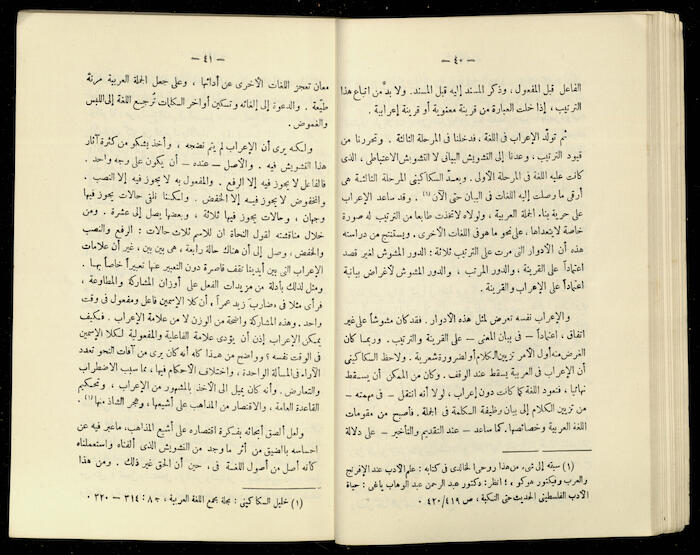 — ٤٠ —
الفاعل قبل المفعول ، وذكر المسند إليه قبل المسند. ولا بدّ من اتباع هذا
الترتيب ، إذا خلت العبارة من قرينة معنوية أو قرينة إعرابية .
ثم تولّد الإعراب فى اللغة ، فدخلنا فى المرحلة الثالثة . وتحررنا من
قيود الترتيب ، وعدنا إلى التشويش البيانى لا التشويش الاعتباطى ، الذى
كانت عليه اللغة فى المرحلة الأولى . وبعدّ السكاكينى المرحلة الثالثة هى
أرقى ما وصلت إليه اللغات فى البيان حتى الآن (١) . وقد ساعد الإعراب
على حرية بناء الجملة العربية ، ولولاه لاتخذت طابعا من الترتيب له صورة
خاصة لا يتعداها ، على نحو ما هو فى اللغات الأخرى . ويستنتج من دراسته
هذه أن الأدوار التى مرت على الترتيب ثلاثة : الدور المشوش لغير قصد
اعتماداً على القرينة ، والدور المرتب ، والدور المشوش لأغراض بيانية
اعتماداً على الإعراب والقرينة .
والإعراب نفسه تعرض لمثل هذه الأدوار . فقد كان مشوشاً على غير
اتفاق ، اعتماداً — فى بيان المعنى — على القرينة والترتيب . وربما كان
الغرض منه أول الأمر تزيين الكلام أو لضرورة شعرية . ولاحظ السكاكينى
أن الإعراب فى العربية يسقط عند الوقف . وكان من الممكن أن يسقط
نهائيا ، فتعود اللغة كما كانت دون إعراب ، لولا أنه انتقل — فى مهمته —
من تزيين الكلام إلى بيان وظيفة الكلمة فى الجملة . فأصبح من مقومات
اللغة العربية وخصائصها . كما ساعد — عند التقديم والتأخير — على دلالة
(١) سبقه إلى شىء من هذا روحى الخالدى فى كتابه : علم الأدب عند الإفرنج
والعرب وفيكتور هوكو ، ؛ انظر : دكتور عبد الرحمن عبد الوهاب ياغى : حياة
الأدب الفلسطينى الحديث حتى النكبة ، ص ٤٢٠/٤١٩
— ٤١ —
معان تعجز اللغات الأخرى عن أدائها ، وعلى جعل الجملة العربية مرنة
طيّعة . والدعوة إلى إلغائه وتسكين أواخر الكلمات تُرجع اللغة إلى اللبس
والغموض .
ولكنه يرى أن الإعراب لم يتم نضجه ، وأخذ يشكو من كثرة آثار
هذا التشويش فيه . والأصل — عنده — أن يكون على وجه واحد .
فالفاعل لا يجوز فيه إلا الرفع . والمفعول به لا يجوز فيه إلا النصب .
والمخفوض لا يجوز فيه إلا الخفض . ولكننا نلقى حالات يجوز فيها
وجهان ، وحالات يجوز فيها ثلاثة ، وبعضها يصل إلى عشرة . ومن
خلال مناقشته لقول النحاة ان للاسم ثلاث حالات : الرفع والنصب
والخفض ، وصل إلى أن هناك حالة رابعة ، هى بين بين ، غير أن علامات
الإعراب التى بين أيدينا تقف قاصرة دون التعبير عنها تعبيراً خاصاً بها .
ومثل لذلك بأدلة من مزيدات الفعل على أوزان المشاركة والمطاوعة ،
فرأى مثلا فى «ضارب زيد عمراً» أن كلا الإسمين فاعل ومفعول فى وقت
واحد . وهذه المشاركة واضحة من الوزن لا من علامة الإعراب . فكيف
يمكن الإعراب إذن أن يؤدى علامة الفاعلية والمفعولية لكلا الإسمين
فى الوقت نفسه ؟ وواضح من هذا كله أنه كان يرى من آفات النحو تعدد
الآراء فى المسألة الواحدة ، واختلاف الأحكام فيها ، مما سبب الاضطراب
والتعارض . وأنه كان يميل الى الأخذ بالمشهور من الإعراب ، وتحكيم
القاعدة العامة ، والاقتصار من المذاهب على أشيعها ، وهجر الشاذ منها (١) .
ولعل ألصق أبحاثه بفكرة اقتصاره على أشيع المذاهب، ما عبر فيه عن
احساسه بالضيق من أثر ما وجد من التشويش الذى ألفناه واستعملناه
كأنه أصل من أصول اللغة فى ، حين أن الحق غير ذلك . ومن هذا
(١) خليل السكاكينى : مجلة مجمع اللغة العربية ، ج ٨ : ٣١٤ — ٣٢٠ .